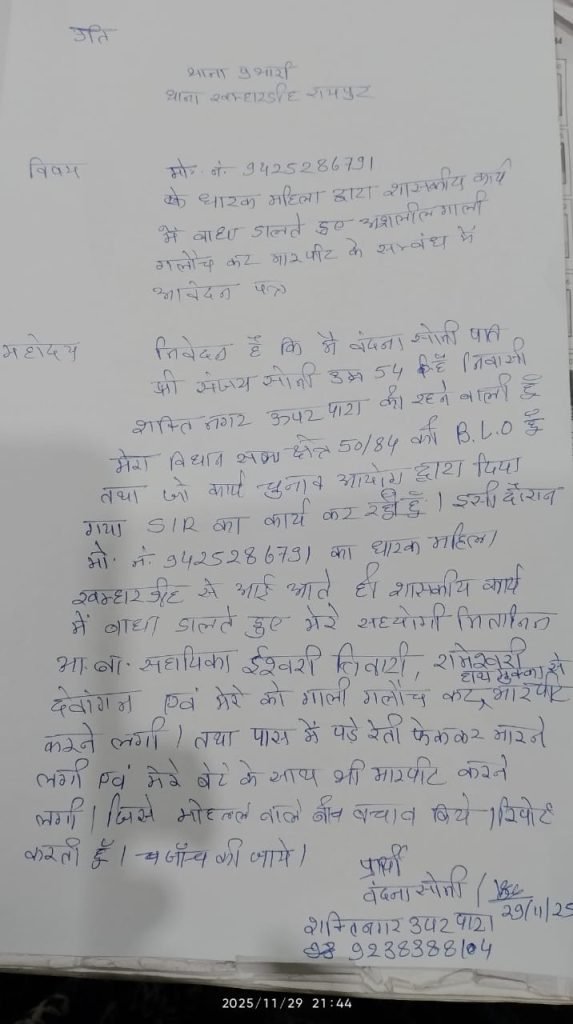 प्रति
थाना प्रभारी
थाना खम्हारडीह रायपुर
विषय मो. नं. 9425286791
के धारक महिला द्वारा शासकीय कार्य
में बाधा डालते हुए अशलील गाली
गलौच कर मारपीट के सम्बंध में
आवेदन पत्र
महोदय निवेदन है कि मैं वंदना सोनी पति
श्री संजय सोनी उम्र 54 निवासी
शक्ति नगर ऊपर पारा की रहने वाली हूँ
मेरा विधान सभा क्षेत्र 50/84 की B.L.O हूँ
तथा जो कार्य चुनाव आयोग द्वारा दिया
गया SIR का कार्य कर रही हूँ। इसी दौरान
मो. नं. 9425286791 का धारक महिला
खम्हारडीह से आई आते ही शासकीय कार्य
में बाधा डालते हुए मेरे सहयोगी मितानिन
आ.बा. सहायिका ईश्वरी तिवारी, रामेश्वरी
देवांगन एवं मेरे को गाली गलौच कर हाथ मुक्का से मारपीट
करने लगी। तथा पास में पड़े रेती फेककर मारने
लगी एवं मेरे बेटे के साथ भी मारपीट करने
लगी। जिसे मोहल्ले वाले बीच बचाव किये। रिपोर्ट
करती हूँ। जाँच की जाये।
प्रार्थी
वंदना सोनी
29/11/25
शक्तिनगर ऊपर पारा
9238388104
2025/11/29 21:44